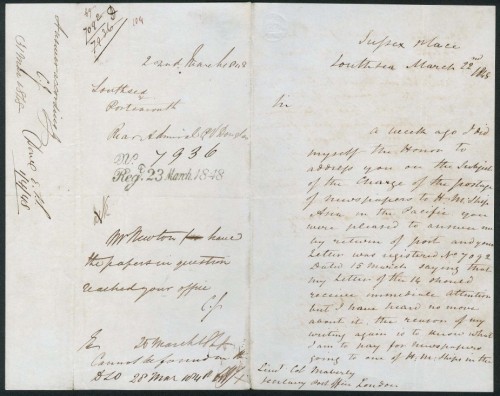 7092
7936
22nd March 1848
Southsea
Portsmouth
Rear Admiral
No 7936
Regd. 23 March 1848
Mr Newton have
the papers in question
reached your office
25 March
Cannot be found in the
DLO 28 Mar 1848
Sussex Place
Southsea March 22nd 1848
Sir
A week ago I did
myself the Honor to
address you on the subject
of the Charge of the postage
of newspapers to H.M. Ship
Asia, in the Pacific you
were pleased to answer me
by return of post and your
Letter was registered No 7092
Dated 15 March saying that
my Letter of the 14 should
receive immediate attention
but I have heard no more
about it, the reason of my
writing again is to know what
I am to pay for newspapers
going to one of H.M. Ships in the
Lieut Col Maberly
Secretary Post Office London